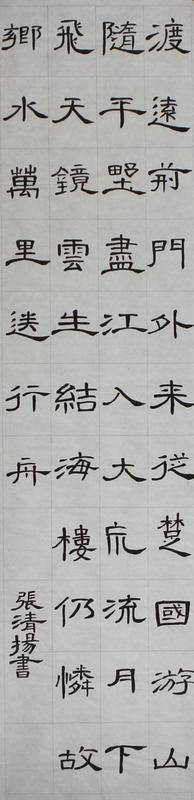 渡遠荊門外来從楚國游山
隨平野盡江入大荒流月下
飛天鏡雲生結海樓仍憐故
鄉水萬里送行舟
張清揚書